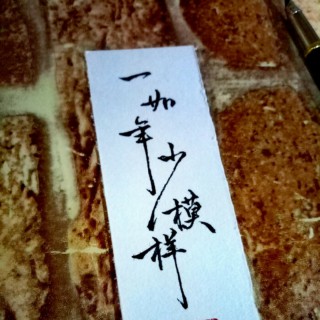 一如年少模样